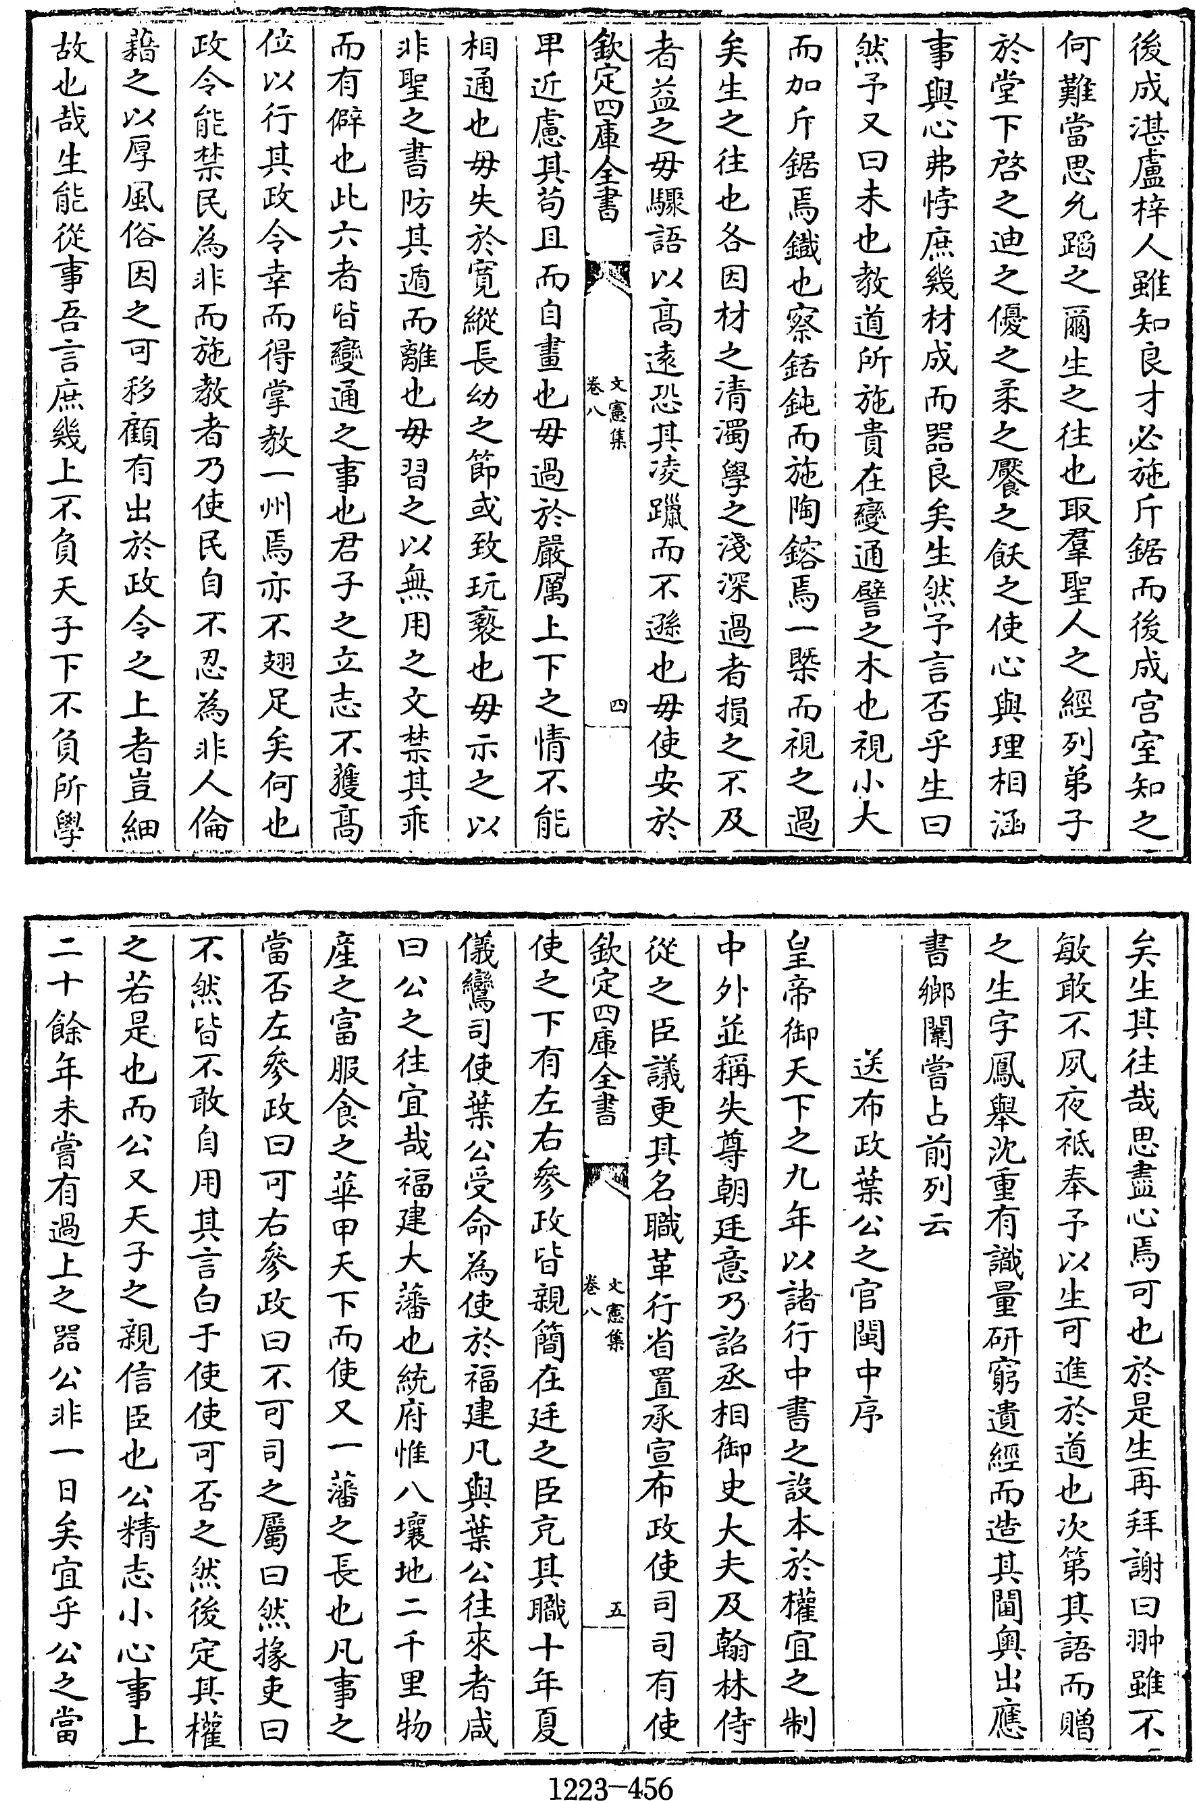 後成湛盧梓人雖知良才必施斤鋸而後成宫室知之
何難當思允蹈之爾生之徃也取羣聖人之經列弟子
於堂下啓之迪之優之柔之饜之飫之使心與理相涵
事與心弗悖庶幾材成而器良矣生然予言否乎生曰
然予又曰未也教道所施貴在變通譬之木也視小大
而加斤鋸焉鐡也察銛鈍而施陶鎔焉一槩而視之過
矣生之往也各因材之清濁學之淺深過者損之不及
者益之毋驟語以髙遠恐其凌躐而不遜也毋使安於
欽定四庫全書
文憲集
卷八
四
卑近慮其苟且而自畫也毋過於嚴厲上下之情不能
相通也毋失於寛縱長幼之節或致玩褻也毋示之以
非聖之書防其遁而離也毋習之以無用之文禁其乖
而有僻也此六者皆變通之事也君子之立志不獲髙
位以行其政令幸而得掌教一州焉亦不翅足矣何也
政令能禁民為非而施教者乃使民自不忍為非人倫
藉之以厚風俗因之可移顧有出於政令之上者豈細
故也哉生能從事吾言庶幾上不負天子下不負所學
矣生其往哉思盡心焉可也於是生再拜謝曰翀雖不
敏敢不夙夜祗奉予以生可進於道也次第其語而贈
之生字鳳舉沈重有識量研窮遺經而造其閫奥出應
書鄉闈嘗占前列云
送布政葉公之官閩中序
皇帝御天下之九年以諸行中書之設本於權宜之制
中外並稱失尊朝廷意乃詔丞相御史大夫及翰林侍
從之臣議更其名職革行省置承宣布政使司司有使
欽定四庫全書
文憲集
卷八
五
使之下有左右參政皆親簡在廷之臣充其職十年夏
儀鸞司使葉公受命為使於福建凡與葉公往來者咸
曰公之往宜哉福建大藩也統府惟八壤地二千里物
産之富服食之華甲天下而使又一藩之長也凡事之
當否左參政曰可右參政曰不可司之屬曰然掾吏曰
不然皆不敢自用其言白于使使可否之然後定其權
之若是也而公又天子之親信臣也公精志小心事上
二十餘年未嘗有過上之器公非一日矣宜乎公之當
1223-456